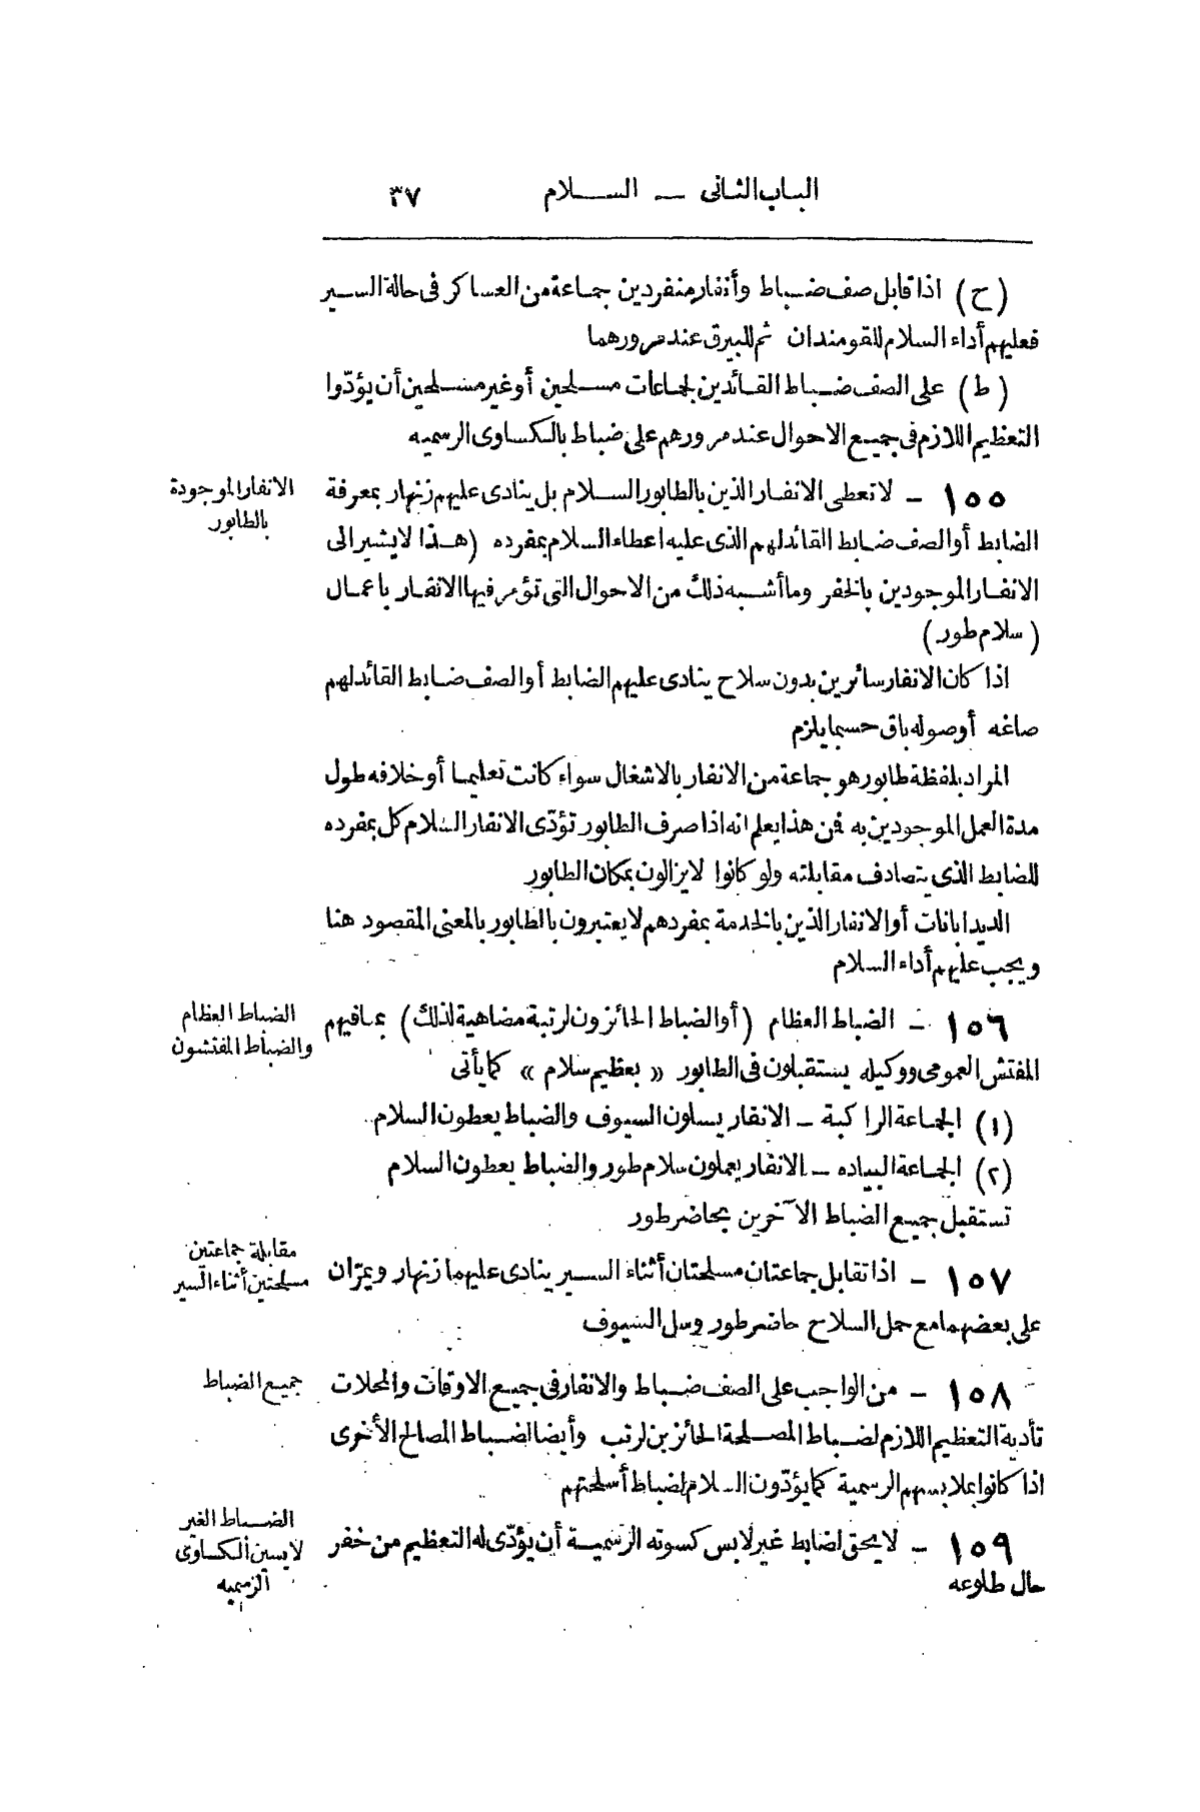 الباب الثانى — السلام ٣٧
(ح) اذا قابل صف ضباط وأنفار منفردين جماعة من العساكر فى حالة السير
فعليهم أداء السلام للقومندان ثم للبيرق عند مرورهما
(ط) على الصف ضباط القائدين لجماعات مسلحين أو غير مسلحين أن يؤدّوا
التعظيم اللازم فى جميع الاحوال عند مرورهم على ضباط بالكساوى الرسميه
الانفار الموجودة
بالطابور
١٥٥ – لا تعطى الانفار الذين بالطابور السلام بل ينادى عليهم زنهار بمعرفة
الضابط أو الصف ضابط القائد لهم الذى عليه اعطاء السلام بمفرده (هذا لا يشير الى
الانفار الموجودين بالخفر وما أشبه ذلك من الاحوال التى تؤمر فيها الانفار باعمال
(سلام طور)
اذا كان الانفار سائرين بدون سلاح ينادى عليهم الضابط أو الصف ضابط القائد لهم
صاغه أو صوله باق حسبما يلزم
المراد بلفظة طابور هو جماعة من الانفار بالاشغال سواء كانت تعليما أو خلافه طول
مدة العمل الموجودين به فمن هذا يعلم انه اذا صرف الطابور تؤدّى الانفار السلام كل بمفرده
للضابط الذى يتصادف مقابلته ولو كانوا لا يزالون بمكان الطابور
الديدابانات أو الانفار الذين بالخدمة بمفردهم لا يعتبرون بالطابور بالمعنى المقصود هنا
ويجب عليهم أداء السلام
الضباط العظام
والضباط المفتشون
١٥٦ – الضباط العظام (أو الضباط الحائزون لرتبة مضاهية لذلك) بما فيهم
المفتش العمومى ووكيله يستقبلون فى الطابور «بعظيم سلام» كما يأتى
(١) الجماعة الراكبة – الانفار يسلون السيوف والضباط يعطون السلام
(٢) الجماعة البياده – الانفار يعملون سلام طور والضباط يعطون السلام
تستقبل جميع الضباط الآخرين بحاضر طور
مقابلة جماعتين
مسلحتين أثناء السير
١٥٧ – اذا تقابل جماعتان مسلحتان أثناء السير ينادى عليهما زنهار ويمرّان
على بعضهما مع حمل السلاح حاضر طور وسل السيوف
جميع الضباط
١٥٨ – من الواجب على الصف ضباط والانفار فى جميع الاوقات والمحلات
تأدية التعظيم اللازم لضباط المصلحة الحائزين لرتب وأيضا الضباط المصالح الأخرى
اذا كانوا بملابسهم الرسمية كما يؤدّون السلام لضباط أسلحتهم
الضباط الغير
لابسين الكساوى
الرسميه
١٥٩ – لا يحق لضابط غير لابس كسوته الرسمية أن يؤدّى له التعظيم من خفر
حال طلوعه